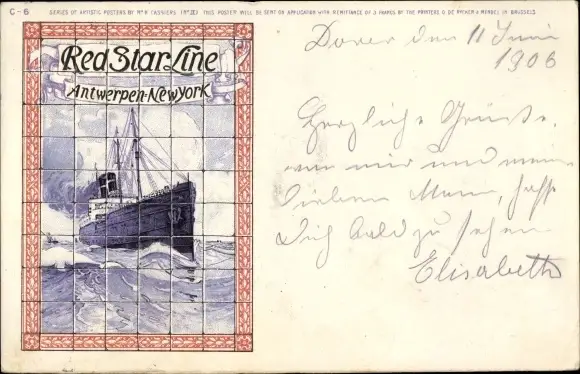 C-6 SERIES OF ARTISTIC POSTERS BY Mr H. CASSIERS (No III) THIS POSTER WILL BE SENT ON APPLICATION WITH REMITTANCE OF 3 FRANCS BY THE PRINTERS O. DE RYCKER & MENDEL IN BRUSSELS
Red Star Line
Antwerpen-New York
Dover den 11 Juni
1906
Herzliche Grüße
von mir und mein
lieben Mann, hoff
Dich bald zu sehen
Elisabeth